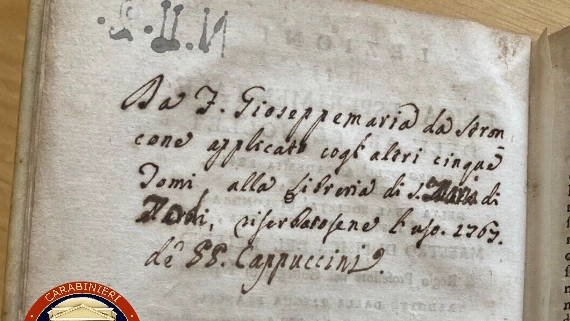 N.II.2.
Da F. Gioseppemaria da Stron
cone applicato cogl'altri cinque
Tomi, alla Libreria di S. di
riserbatosene l'uso. 1767.
de PP. Cappuccini.
CARABINIERI